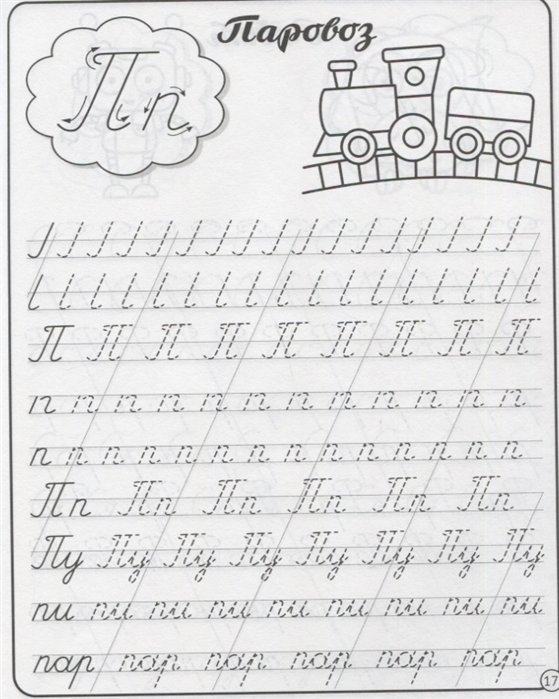 Паровоз
Пп
П П П П П П П П П
п п п п п п п п п п п п
п п п п п п п п п п п п п п
Пп Пп Пп Пп Пп Пп
Пу Пу Пу Пу Пу Пу Пу Пу Пу
пи пи пи пи пи пи пи пи пи
пар пар пар пар пар пар